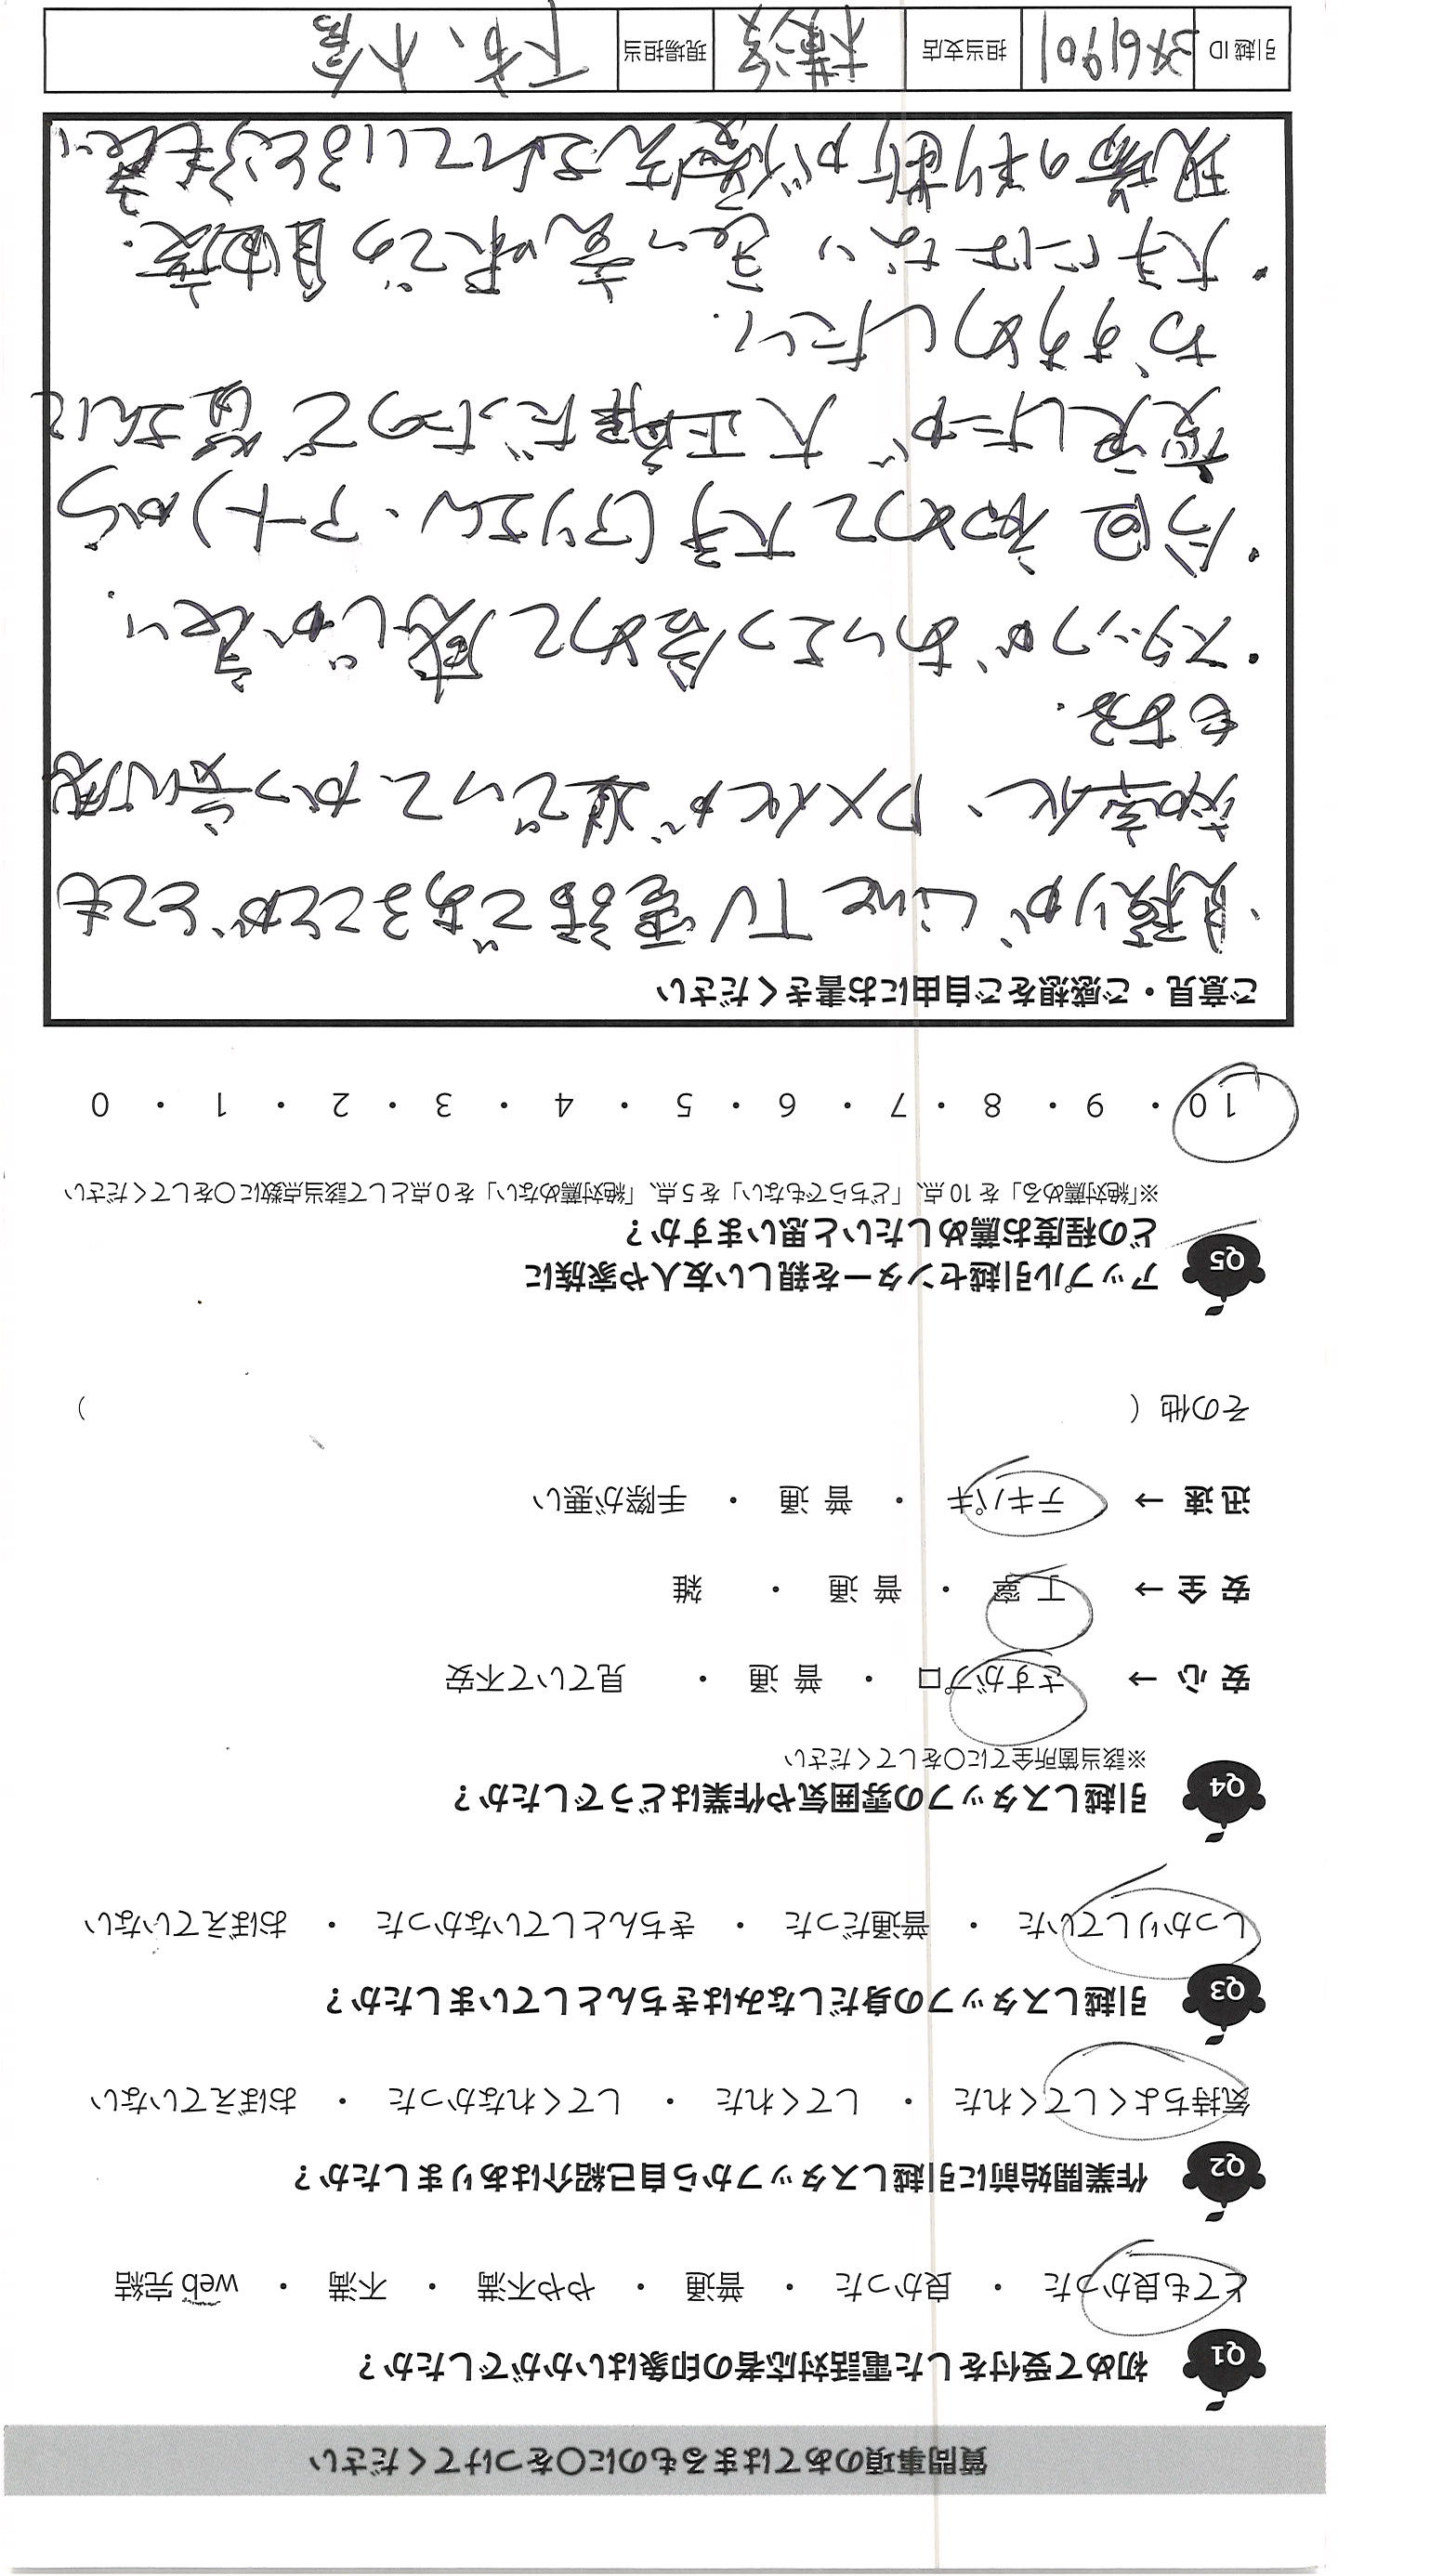 質問事項のあてはまるものに○をつけてください
Q1 初めて受付をした電話対応者の印象はいかがでしたか？
とても良かった ・ 良かった ・ 普通 ・ やや不満 ・ 不満 ・ web 完結
Q2 作業開始前に引越しスタッフから自己紹介はありましたか？
気持ちよくしてくれた ・ してくれた ・ してくれなかった ・ おぼえていない
Q3 引越しスタッフの身だしなみはきちんとしていましたか？
しっかりしていた ・ 普通だった ・ きちんとしていなかった ・ おぼえていない
Q4 引越しスタッフの雰囲気や作業はどうでしたか？
※該当箇所全てに○をしてください
安 心 → さすがプロ ・ 普 通 ・ 見ていて不安
安 全 → 丁 寧 ・ 普 通 ・ 雑
迅 速 → テキパキ ・ 普 通 ・ 手際が悪い
その他（ ）
Q5 アップル引越センターを親しい友人や家族に
どの程度お薦めしたいと思いますか？
※「絶対薦める」を 10 点、「どちらでもない」を 5 点、「絶対薦めない」を 0 点として該当点数に○をしてください
10 ・ 9 ・ 8 ・ 7 ・ 6 ・ 5 ・ 4 ・ 3 ・ 2 ・ 1 ・ 0
ご意見・ご感想をご自由にお書きください
・見積りが Line TV電話であることがとても
効率化、DX化が進でいて、かつ安心感
もある.
・スタッフがあいさつ含めて感じが良い.
・今回 初めて大手(アリさん、アート)から
変更したが 大正解だったので 皆さんに
おすすめしたい.
・大手にはない 良い意味での自由度.
現場の判断が優先されているところも良い
引越 ID 3461901 担当支店 横浜 現場担当 下市、小倉